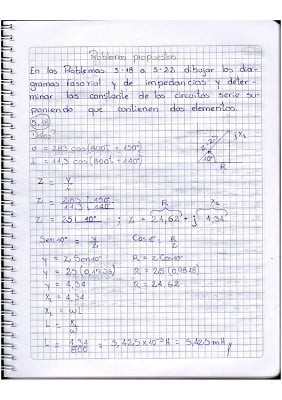 Problemas propuestos
En los Problemas 5-18 a 5-22 dibujar los dia-
gramas fasorial y de impedancias y deter-
minar las constante de los circuitos serie su-
poniendo que contienen dos elementos.
5-18
Datos:
v = 283 cos(800t + 150°)
i = 11,3 cos(800t + 140°)
Z = V/I
Z = 283 |150° / 11,3 |140°
Z = 25 |10° ; Z = 24,62 + j 4,34
R XL
jXL
Z=25
10°
R
Sen10° = y/Z Cos10° = R/Z
y = Z Sen10° R = Z Cos10°
y = 25(0,1736) R = 25(0,9848)
y = 4,34 R = 24.62
XL = 4,34
XL = ωL
L = XL/ω
L = 4,34/800 = 5,425 x10⁻³ H = 5,425 mH